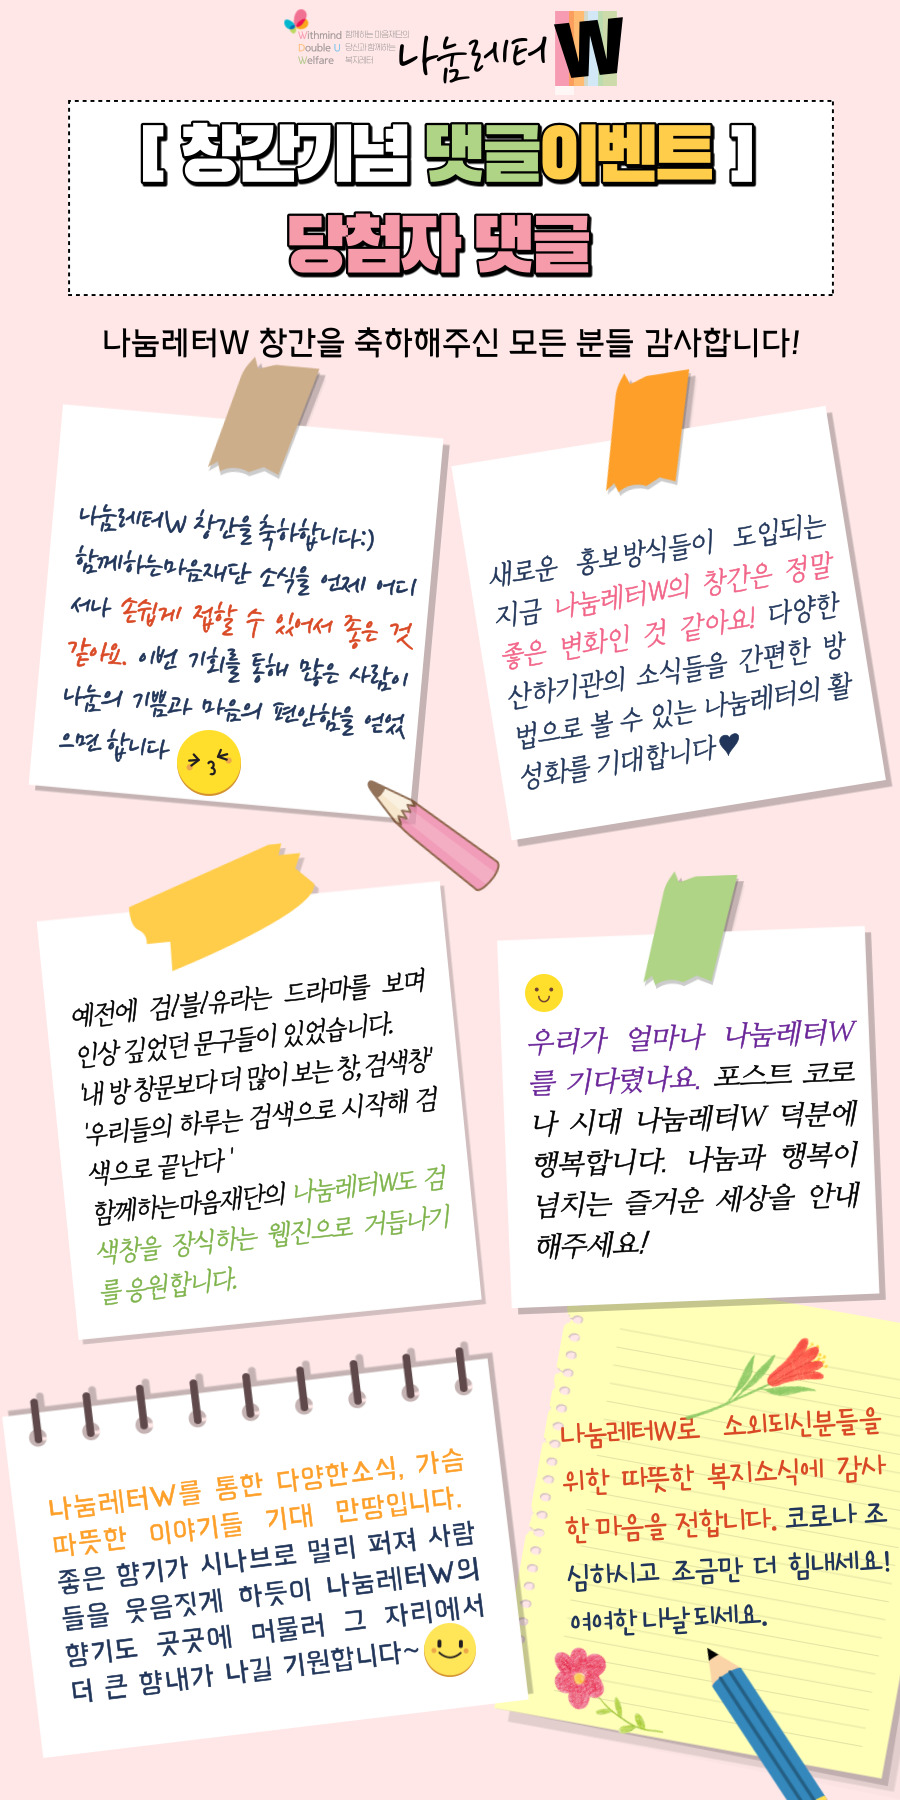 Withmind 함께하는 마음재단의
Double U 당신과 함께하는
Welfare 복지레터
나눔레터 W
[ 창간기념 댓글이벤트 ]
당첨자 댓글
나눔레터W 창간을 축하해주신 모든 분들 감사합니다!
나눔레터W 창간을 축하합니다:)
함께하는마음재단 소식을 언제 어디
서나 손쉽게 접할 수 있어서 좋은 것
같아요. 이번 기회를 통해 많은 사람이
나눔의 기쁨과 마음의 편안함을 얻었
으면 합니다
새로운 홍보방식들이 도입되는
지금 나눔레터W의 창간은 정말
좋은 변화인 것 같아요! 다양한
산하기관의 소식들을 간편한 방
법으로 볼 수 있는 나눔레터의 활
성화를 기대합니다♥
예전에 검/블/유라는 드라마를 보며
인상 깊었던 문구들이 있었습니다.
'내 방 창문보다 더 많이 보는 창, 검색창'
'우리들의 하루는 검색으로 시작해 검
색으로 끝난다 '
함께하는마음재단의 나눔레터W도 검
색창을 장식하는 웹진으로 거듭나기
를 응원합니다.
우리가 얼마나 나눔레터W
를 기다렸나요. 포스트 코로
나 시대 나눔레터W 덕분에
행복합니다. 나눔과 행복이
넘치는 즐거운 세상을 안내
해주세요!
나눔레터W를 통한 다양한소식, 가슴
따뜻한 이야기들 기대 만땅입니다.
좋은 향기가 시나브로 멀리 퍼져 사람
들을 웃음짓게 하듯이 나눔레터W의
향기도 곳곳에 머물러 그 자리에서
더 큰 향내가 나길 기원합니다~
나눔레터W로 소외되신분들을
위한 따뜻한 복지소식에 감사
한 마음을 전합니다. 코로나 조
심하시고 조금만 더 힘내세요!
여여한 나날 되세요.